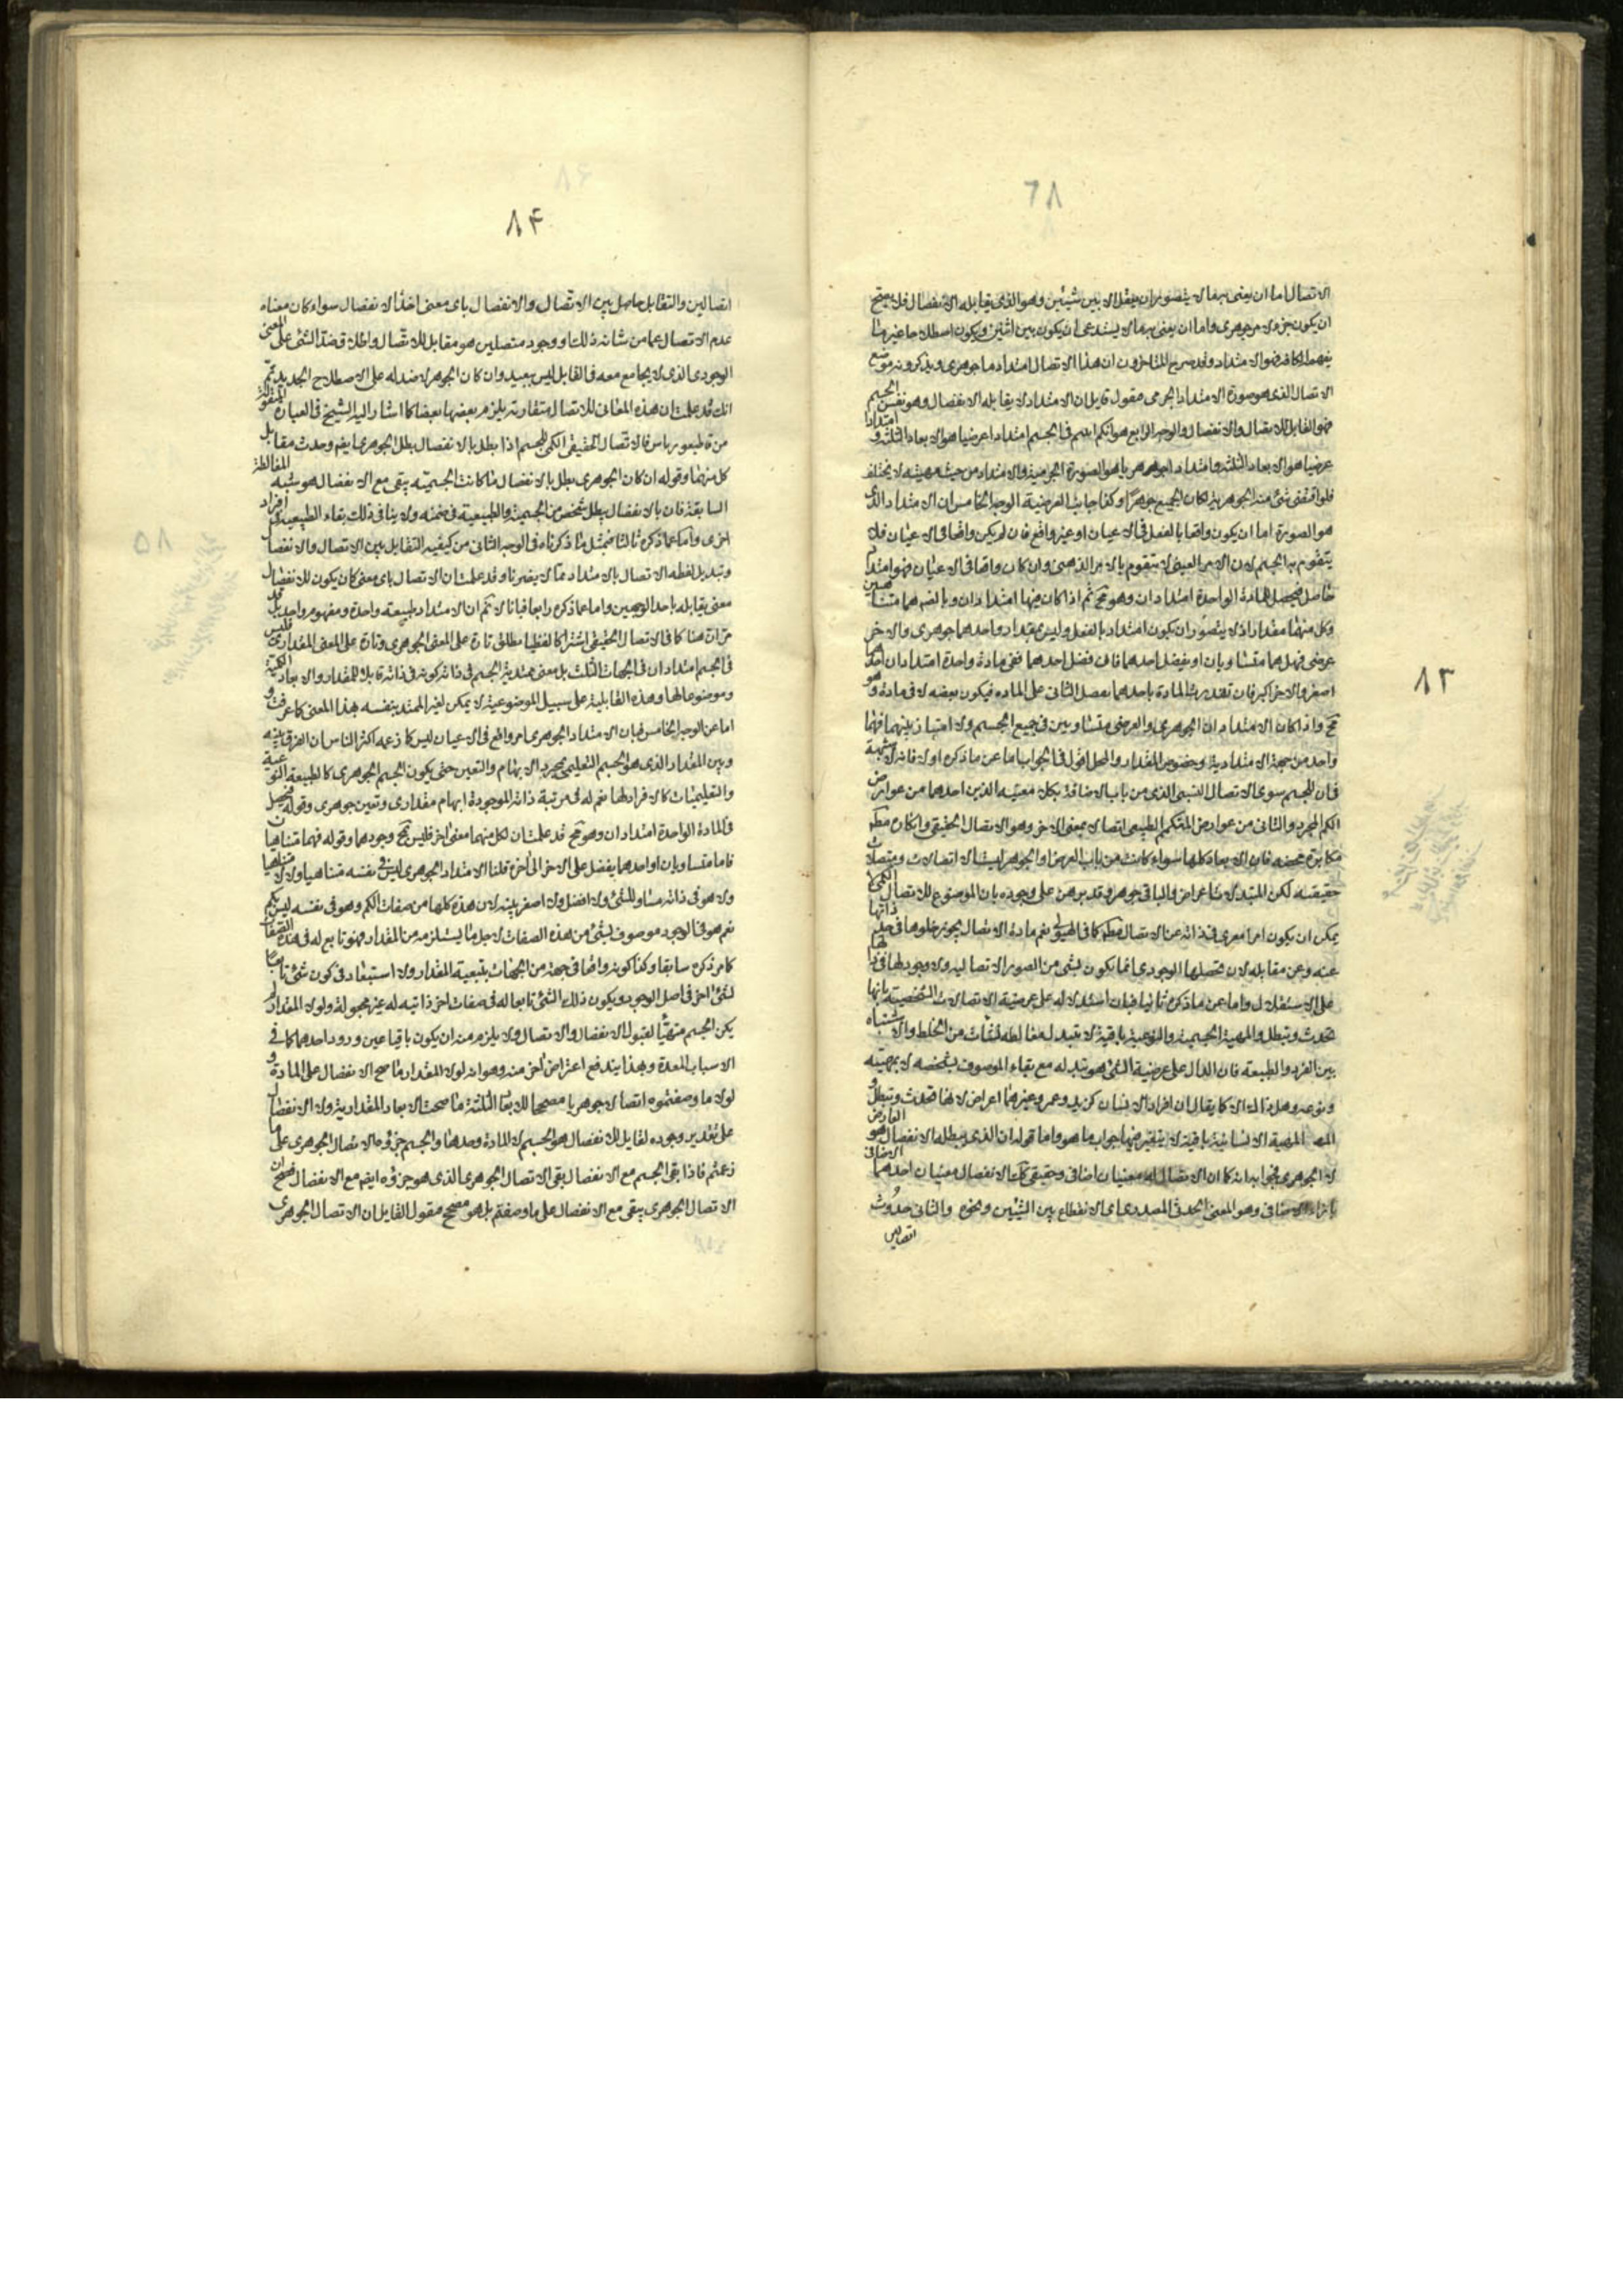 الاتصال اما ان يعنى به ما لا يتصور ان يعقل الا بين شيئين وهو الذى يقابله الانفصال فلا يصح
ان يكون جزءا لامر جوهرى واما ان يعنى به ما لا يستدعى ان يكون بين اثنين ويكون اصطلاحا غير ما
الاتصال الذى هو صورة الامتداد الجرمى فنقول قايل ان الامتداد لا يقابله الانفصال وهو نفس الجسم
فهو القابل للاتصال والانفصال والوجه الرابع هو انكم اثبتم فى الجسم امتدادا عرضيا هو الابعاد الثلثة و امتدادا
فلو اقتضى شئ منه الجوهرية لكان الجميع جوهرا وكذا جانب العرضية الوجه الخامس ان الامتداد الذى
هو الصورة اما ان يكون واقعا بالفعل فى الاعيان او غير واقع فان لم يكن واقعا فى الاعيان فلا
يتقوم به الجسم لان الامر العينى لا يتقوم بالامر الذهنى وان كان واقعا فى الاعيان فهو امتداد
وكل منهما مقدار اذ لا يتصور ان يكون امتداد بالفعل وليس بمقدار واحدهما جوهرى والاخر
عرضى فهل هما متساويان او يفضل احدهما فان فضل احدهما ففى مادة واحدة امتدادان احدهما
اصغر والاخر اكبر فان تقدرت المادة باحدهما يفضل الثانى على المادة فيكون بعضه لا فى مادة وهو
مح واذا كان الامتدادان الجوهرى والعرضى متساويين فى جميع الجسم ولا امتياز بينهما فهما
واحد من جهة الامتدادية وخصوص المقدار والمحل اقول فى الجواب اما عن ما ذكره اولا فانه لا شبهة
فى ان للجسم سوى الاتصال النسبى الذى من باب الاضافة بكلا معنييه الذين احدهما من عوارض
الكم المجرد والثانى من عوارض المتكمم الطبيعى اتصالا بمعنى الاخر وهو الاتصال الحقيقى وانكاره مطلقا
مكابرة محضة فان الابعاد كلها سواء كانت من باب العرض او الجوهر ليست الا اتصالات ومتصلات
يمكن ان يكون امرا معرى فى ذاته عن الاتصال مطلقا كما فى الهيولى نعم مادة الاتصال يجوز خلوها فى حد ذاتها
عنه وعن مقابله لان تحصلها الوجودى انما يكون بشئ من الصور الاتصالية ولا وجود لها فى ذاتها
على الاستقلال واما عن ما ذكره ثانيا فبان استدلاله على عرضية الاتصالات الشخصية بانها
تحدث وتبطل والمهية الجسمية والنوعية باقية لا تتبدل مغالطة نشات من الخلط والاشتباه
بين الفرد والطبيعة فان الدال على عرضية الشئ هو تبدله مع بقاء الموصوف بشخصه لا بمهيته
ونوعه وهل هذا الا كما يقال ان افراد الانسان كزيد وعمرو وغيرهما اعراض لانها تحدث وتبطل و
المهية الانسانية باقية لا يتغير فيها جواب ما هو واما قوله ان الذى يبطله الانفصال هو العارض
لا الجوهرى فجوابه انه كما ان الاتصال له معنيان اضافى وحقيقى كك الانفصال معنيان احدهما
بازاء الاضافى وهو المعنى الحدثى المصدرى اى الانقطاع بين الشيئين ونحوه والثانى حدوث
اتصالين
٨٣
٨۴
اتصالين والتقابل حاصل بين الاتصال والانفصال باى معنى اخذ الانفصال سواء كان معناه
عدم الاتصال عما من شانه ذلك او وجود متصلين هو مقابل للاتصال واطلاق ضد الشئ على المعنى
الوجودى الذى لا يجامع معه فى القابل ليس ببعيد وان كان الجوهر لا ضد له على الاصطلاح الجديد ثم
انك قد علمت ان هذه المعانى للاتصال متقاربة يلزم بعضها بعضا كما اشار اليه الشيخ فى العبارة المنقولة
من قاطيغورياس فالاتصال الحقيقى الكمى للجسم اذا بطل بالانفصال بطل الجوهرى ايضا وحدث مقابل
كل منهما وقوله ان كان الجوهرى بطل بالانفصال ما كانت الجسمية يبقى مع الانفصال هو شبه المغالطة
السابقة فان بالانفصال يبطل شخص من الجسمية والطبيعية فى ضمنه ولا ينافى ذلك بقاء الطبيعة فى افراد
اخرى واما عما ذكره ثالثا فبمثل ما ذكرناه فى الوجه الثانى من كيفية التقابل بين الاتصال والانفصال
وتبديل لفظه الاتصال بالامتداد مما لا يضرنا وقد علمت ان الاتصال باى معنى كان يكون للانفصال
معنى يقابله باحد الوجهين واما عما ذكره رابعا فبانا لا نم ان الامتداد طبيعة واحدة ومفهوم واحد بل قد
مر ان هنا كما فى الاتصال الحقيقى اشتراكا لفظيا يطلق تارة على المعنى الجوهرى وتارة على المعنى المقدارى فليس
فى الجسم امتدادان فى الجهات الثلث بل معنى ممتدية الجسم فى ذاته كونه فى ذاته قابلا للمقدار والابعاد الكمية
وموضوعا لها وهذه القابلية على سبيل الموضوعية لا يمكن لغير الممتد بنفسه بهذا المعنى كما عرفت و
اما عن الوجه الخامس فبان الامتداد الجوهرى امر واقع فى الاعيان ليس كما زعمه اكثر الناس ان الفرق بينه
وبين المقدار الذى هو الجسم التعليمى بمجرد الابهام والتعين حتى يكون الجسم الجوهرى كالطبيعة النوعية
والتعليميات كالافراد لها نعم له فى مرتبة ذاته الموجودة ابهام مقدارى وتعين جوهرى وقوله فيحصل
فى المادة الواحدة امتدادان وهو مح قد علمت ان لكل منهما معنى اخر فليس مح وجودهما وقوله فهما متناهيان
فاما متساويان او احدهما يفضل على الاخر الى اخره قلنا الامتداد الجوهرى ليس فى نفسه متناهيا ولا لا متناهيا
ولا هو فى ذاته مساو للشئ ولا افضل ولا اصغر بتة لان هذه كلها من صفات الكم وهو فى نفسه ليس بكم
نعم هو فى الوجود موصوف بشئ من هذه الصفات لاجل ما يستلزمه من المقدار فهو تابع له فى هذه الصفات
كما مر ذكره سابقا وكذا كونه واقعا فى جهة من الجهات بتبعية المقدار ولا استبعاد فى كون شئ تابعا
لشئ اخر فى اصل الوجود ويكون ذلك الشئ تابعا له فى صفات اخر ذاتية له غير مجعولة ولولا المقدار لم
يكن الجسم متهيئا لقبول الانفصال والاتصال ولا يلزم منه ان يكون باقيا عين ورود احدهما كما فى
الاسباب المعدة وبهذا يندفع اعتراض اخر منه وهو انه لولا المقدار ما صح الانفصال على المادة و
لولا ما وصفتموه اتصالا جوهريا مصححا للابعاد الثلثة ما صحت الابعاد المقدارية ولا الانفصال
على تقدير وجوده لقابل للانفصال هو الجسم لا المادة وحدها والجسم جزؤه الاتصال الجوهرى على ما
زعمتم فاذا بقى الجسم مع الانفصال بقى الاتصال الجوهرى الذى هو جزؤه ايضا مع الانفصال فصح ان
الاتصال الجوهرى يبقى مع الانفصال على ما وصفتم بل هو مصحح فنقول القايل ان الاتصال الجوهرى